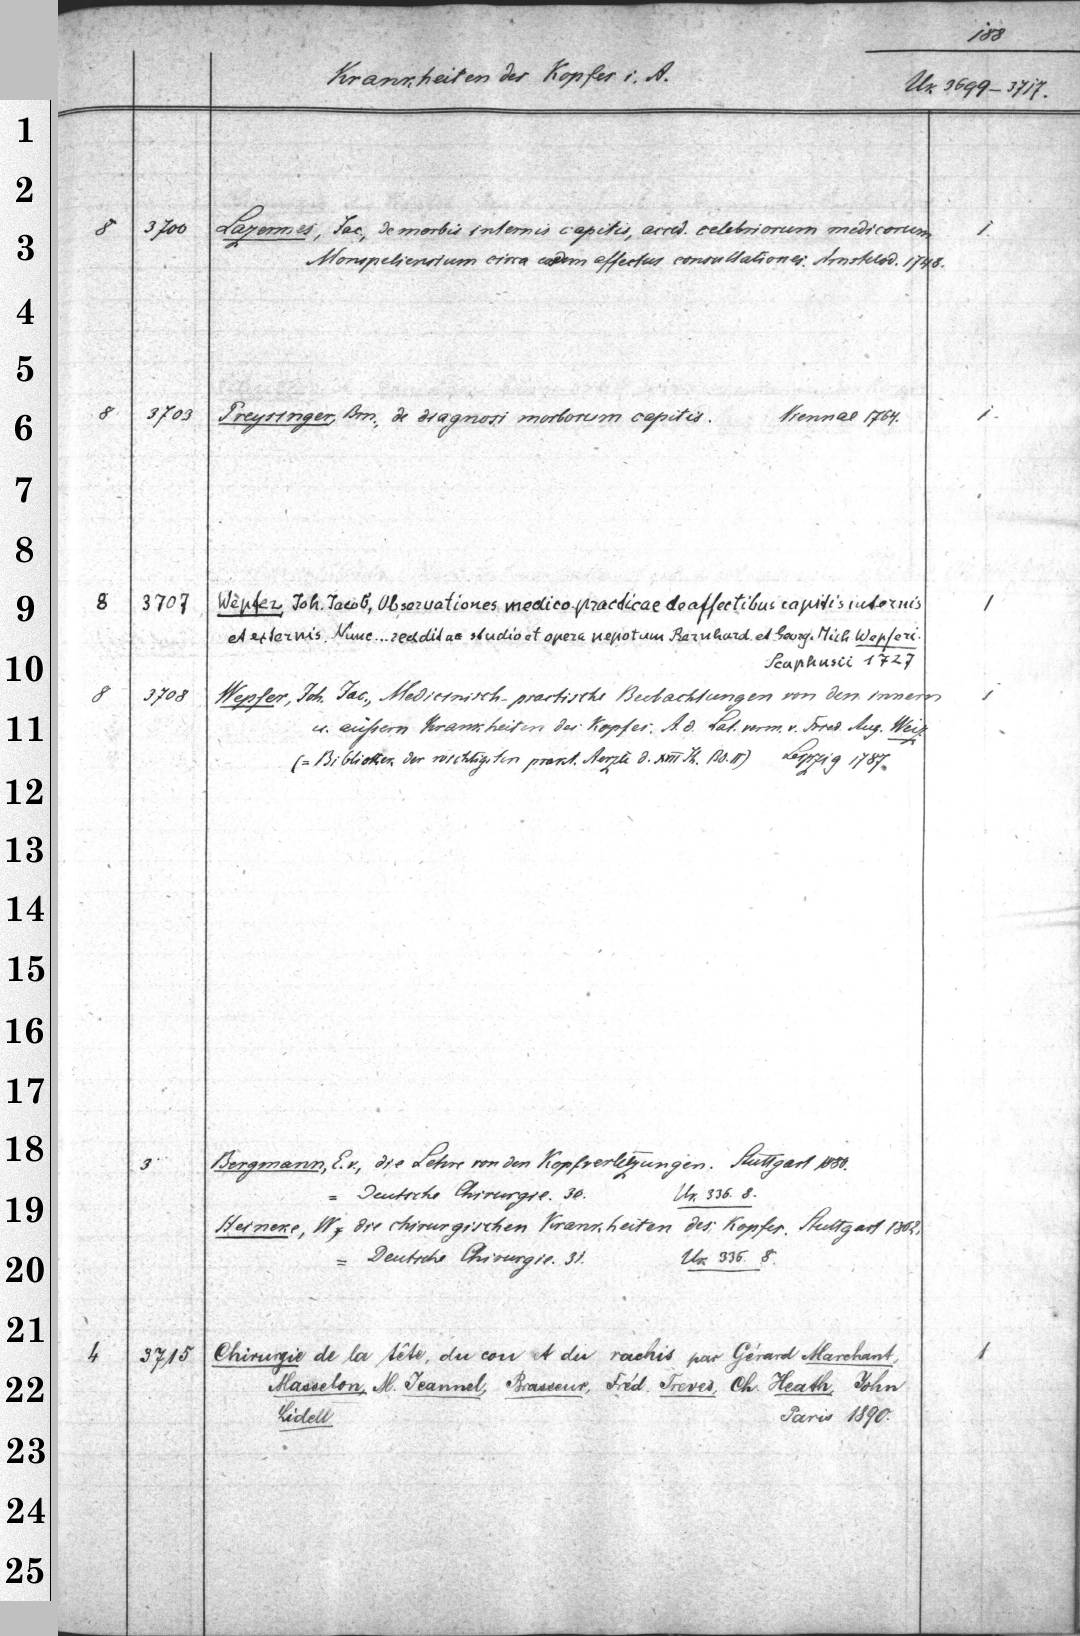 188
Krankheiten des Kopfes i. A.
Uk 3699–3717.
8 3700 Lazermes, Jac., de morbis internis capitis, acced. celebriorum medicorum 1.
Monspeliensium circa eosdem affectus consultationes. Amstelod. 1748.
8 3703 Preysinger, Bm., de diagnosi morborum capitis. Viennae 1764. 1.
8 3707 Wepfer, Joh. Jacob, Observationes medico-practicae de affectibus capitis internis 1
et externis. Nunc... redditae studio et opera nepotum Bernhard. et Georg. Mich. Wepferi.
Scaphusii 1727
8 3708 Wepfer, Joh. Jac., Medicinisch-practische Beobachtungen von den innern 1
u. äußern Krankheiten des Kopfes. A. d. Lat. verm. v. Fried. Aug. Weiz.
(= Bibliothek der wichtigsten prakt. Aerzte d. XVII Jh. Bd. II) Leipzig 1787.
3 Bergmann, E. v., die Lehre von den Kopfverletzungen. Stuttgart 1880.
= Deutsche Chirurgie. 30. Uk 336. 8.
Heineke, W., die chirurgischen Krankheiten des Kopfes. Stuttgart 1882.
= Deutsche Chirurgie. 31. Uk 336. 8.
4 3715 Chirurgie de la tête, du cou et du rachis par Gérard Marchant, 1
Masselon, M. Jeannel, Brasseur, Fréd. Treves, Ch. Heath, John
Lidell Paris 1890.
1
2
3
4
5
6
7
8
9
10
11
12
13
14
15
16
17
18
19
20
21
22
23
24
25